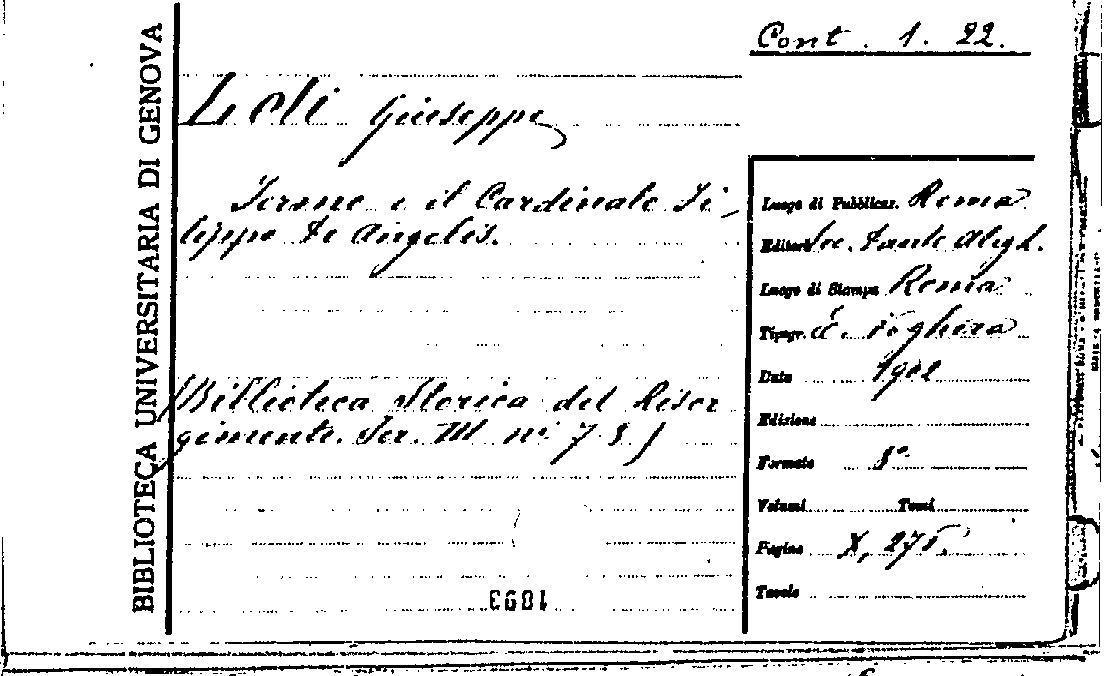 BIBLIOTECA UNIVERSITARIA DI GENOVA
Cont. 1. 22.
Leti Giuseppe
Fermo e il Cardinale Fi-
lippo De Angelis.
(Biblioteca Storica del Risor
gimento. Ser. III n.i 7-8)
Luogo di Pubblicaz. Roma
Editore Soc. Dante Aligh.
Luogo di Stampa Roma
Tipogr. E. Voghera
Data 1902
Edizione
Formato 8°
Volumi Tomi
Pagine X, 275.
Tavole
1093